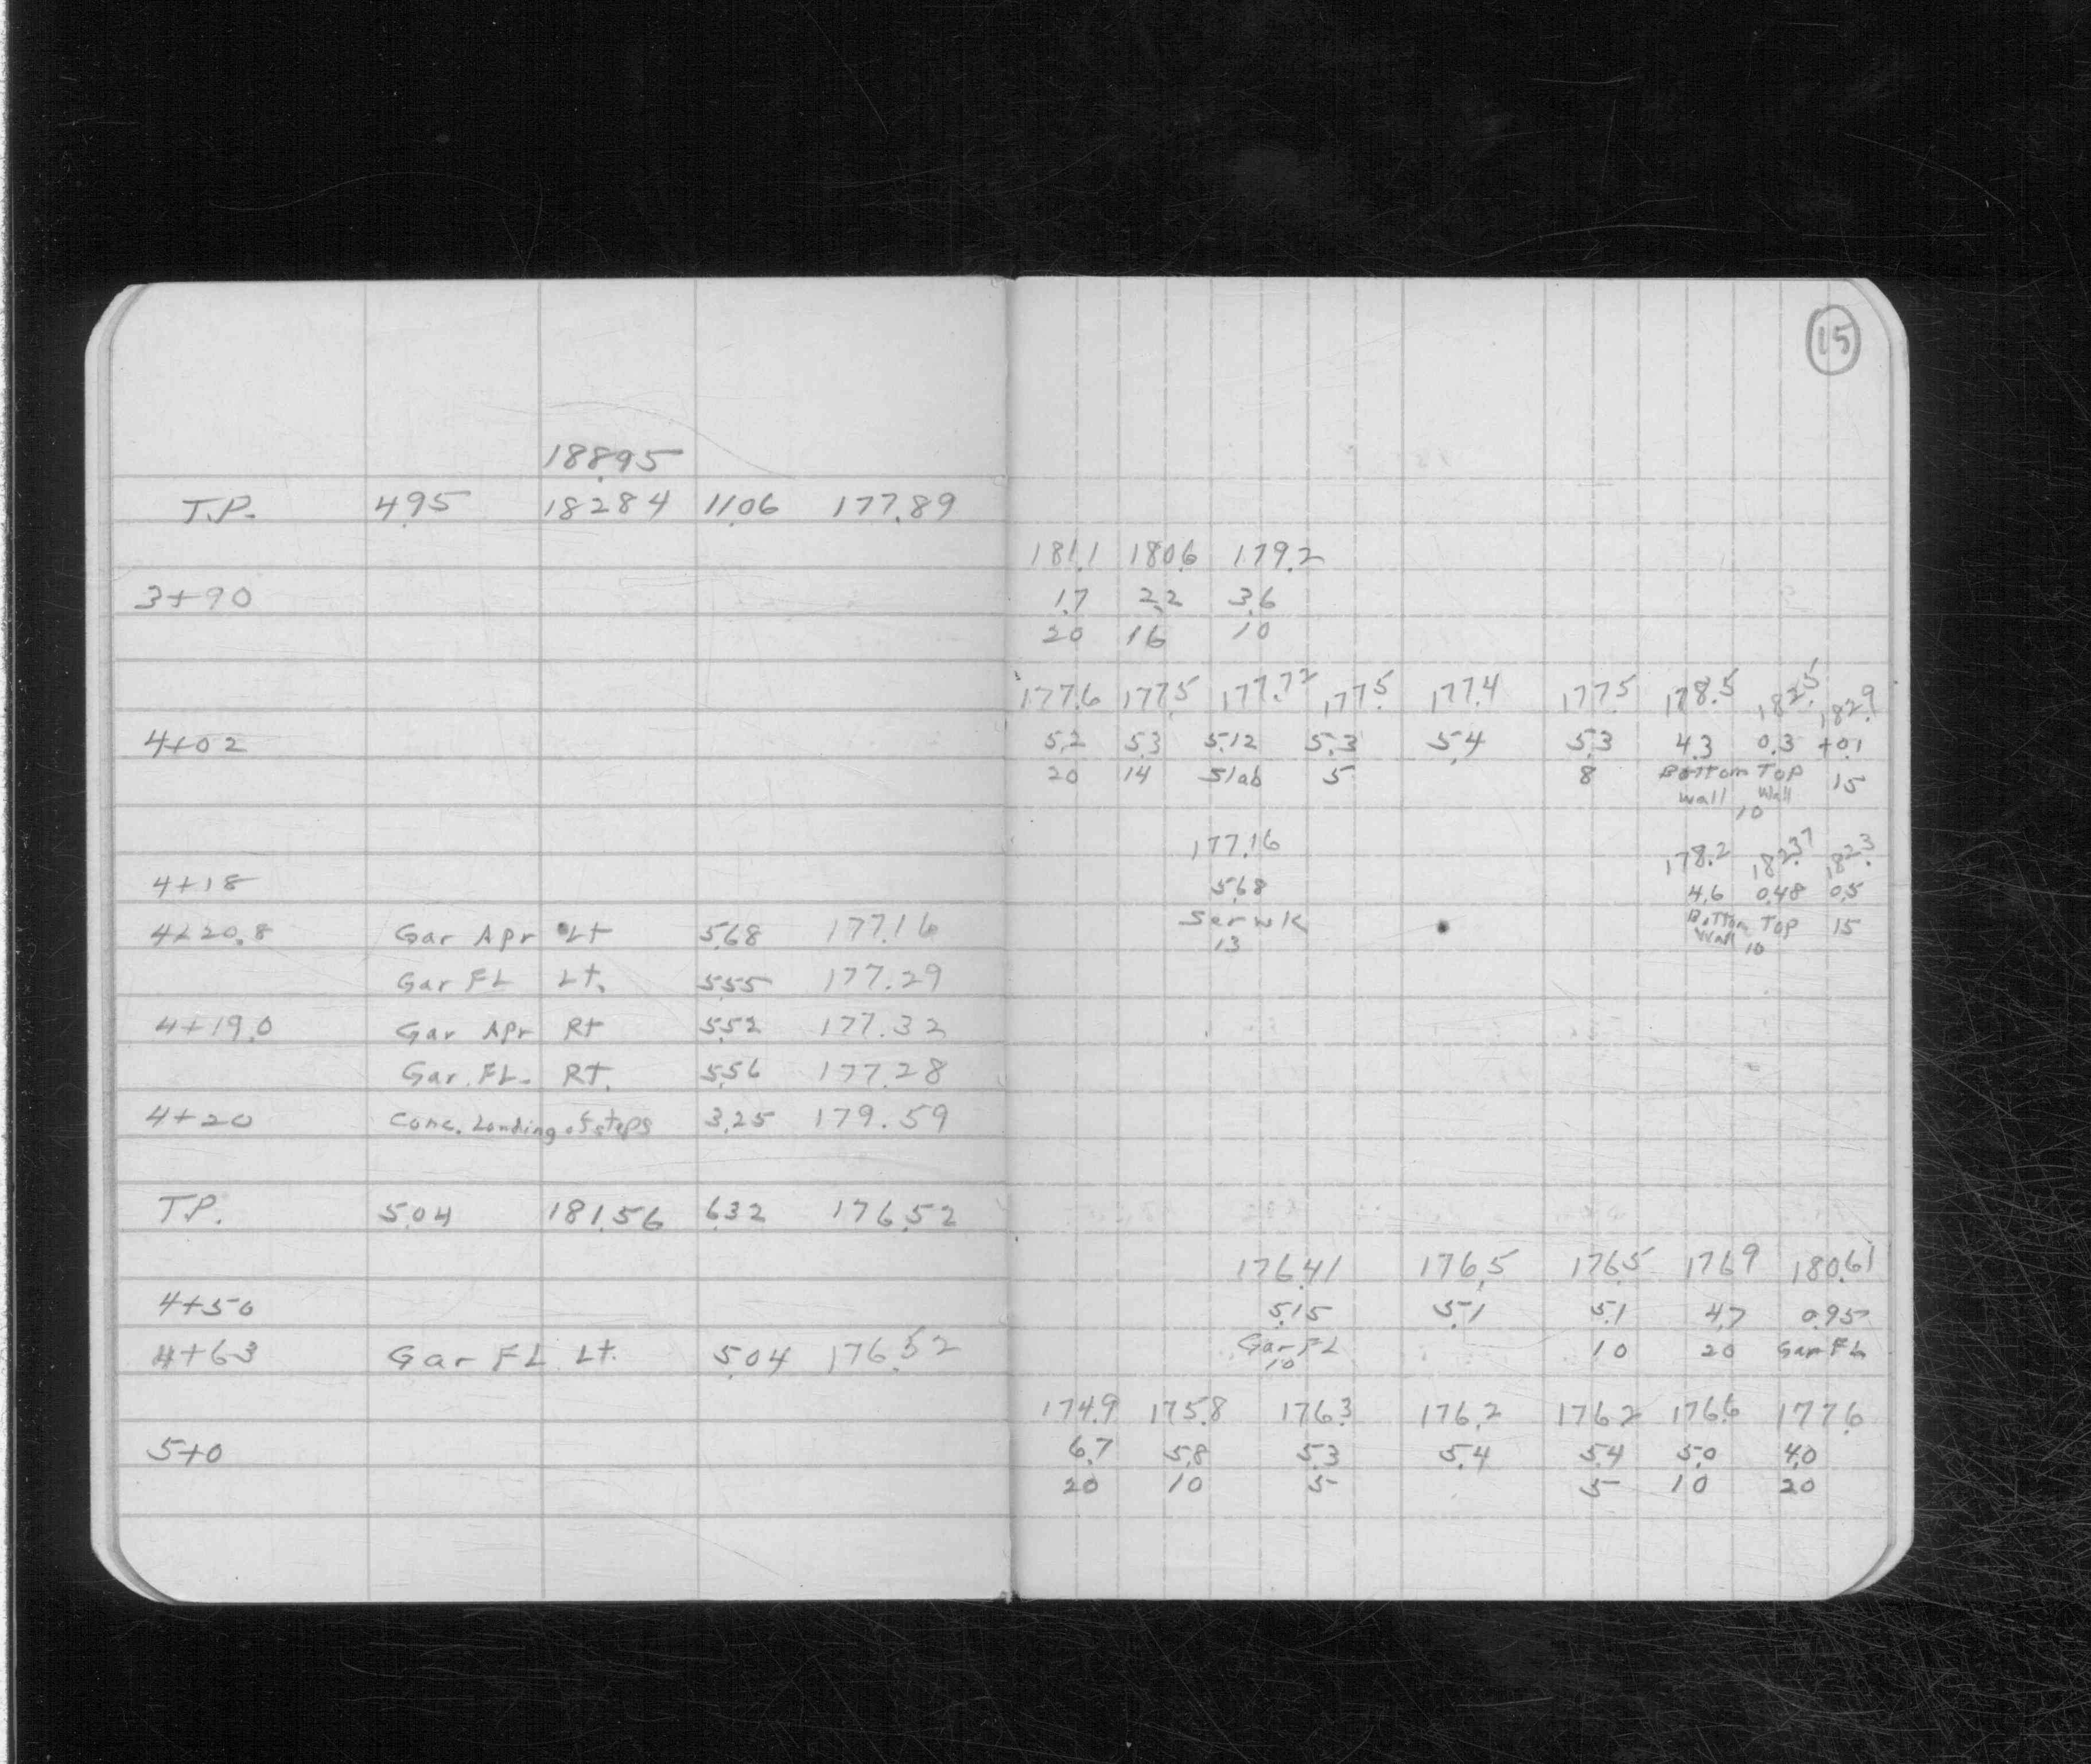 15
188.95
T.P. 4.95 182.84 11.06 177.89
181.1 180.6 179.2
3+90 1.7 2.2 3.6
20 16 10
177.6 177.5 177.72 177.5 177.4 177.5 178.5 182.5 182.9
4+02 5.2 5.3 5.12 5.3 5.4 5.3 4.3 0.3 +0.1
20 14 Slab 5 8 Bottom Top 15
Wall Wall
10
177.16 178.2 182.37 182.3
4+18 5.68 4.6 0.48 0.5
4+20.8 Gar Apr Lt 5.68 177.16 Ser wk Bottom Top 15
13 Wall 10
Gar FL Lt. 5.55 177.29
4+19.0 Gar Apr Rt 5.52 177.32
Gar. FL. Rt. 5.56 177.28
4+20 Conc. Landing of steps 3.25 179.59
T.P. 5.04 181.56 6.32 176.52
176.41 176.5 176.5 176.9 180.61
4+50 5.15 5.1 5.1 4.7 0.95
4+63 Gar FL Lt. 5.04 176.52 Gar FL 10 20 Gar FL
10
174.9 175.8 176.3 176.2 176.2 176.6 177.6
5+0 6.7 5.8 5.3 5.4 5.4 5.0 4.0
20 10 5 5 10 20